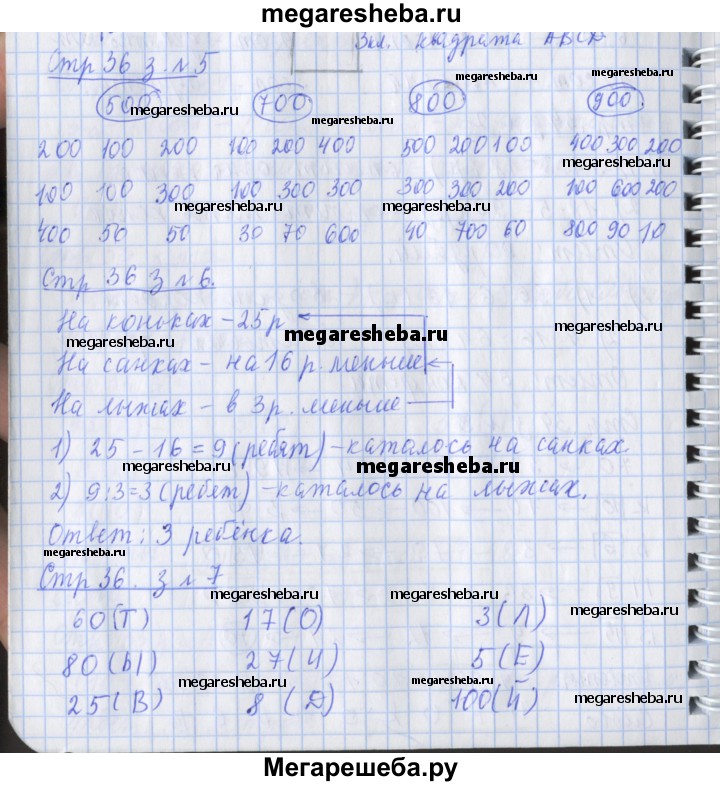 megaresheba.ru
Зкл. квадрата ABCD
Стр 36 з. №5
500 700 800 900
megaresheba.ru megaresheba.ru
megaresheba.ru
megaresheba.ru
200 100 200 100 200 400 500 200 100 400 300 200
megaresheba.ru
100 100 300 100 300 300 300 300 200 100 600 200
megaresheba.ru megaresheba.ru
400 50 50 30 70 600 40 700 60 800 90 10
Стр 36 з №6.
На коньках - 25 р.
megaresheba.ru
megaresheba.ru
megaresheba.ru
На санках - на 16 р. меньше
На лыжах - в 3 р. меньше
1) 25 - 16 = 9 (ребят) - каталось на санках.
megaresheba.ru
megaresheba.ru
2) 9:3=3 (ребят) - каталось на лыжах.
Ответ: 3 ребёнка.
megaresheba.ru
megaresheba.ru
Стр 36. з №7
megaresheba.ru megaresheba.ru
60(Т) 17(О) 3(Л)
megaresheba.ru
80(Ы) 27(И) 5(Е)
megaresheba.ru
25(В) 8 (Д) 100(Й)
megaresheba.ru
Мегарешеба.ру